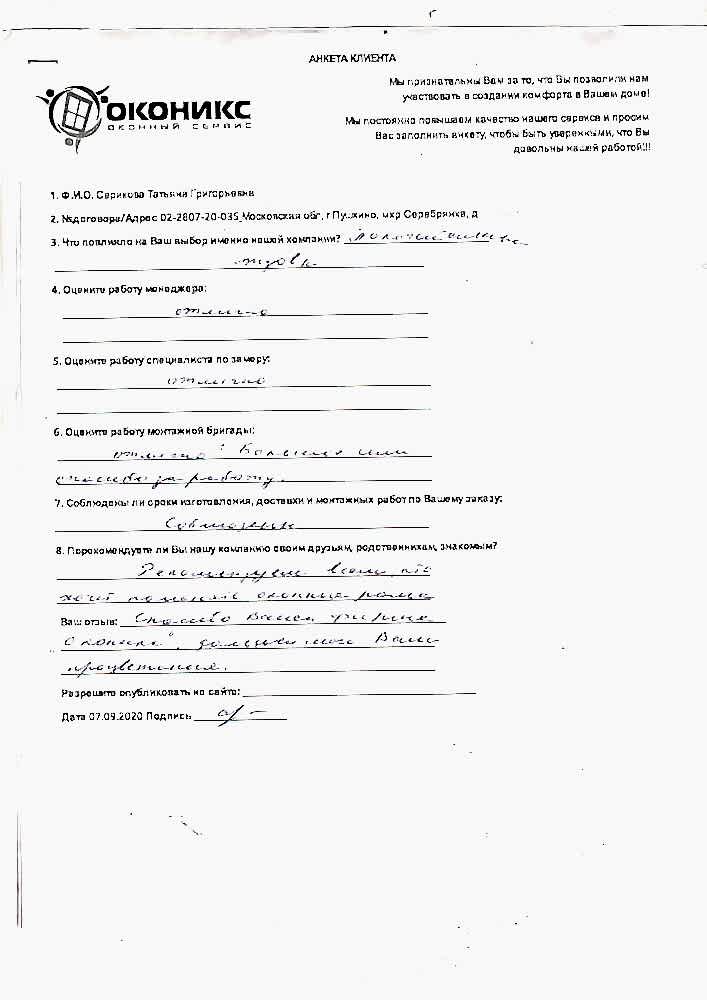 АНКЕТА КЛИЕНТА
Мы признательны Вам за то, что Вы позволили нам
участвовать в создании комфорта в Вашем доме!
ОКОНИКС
ОКОННЫЙ СЕРВИС
Мы постоянно повышаем качество нашего сервиса и просим
Вас заполнить анкету, чтобы быть уверенными, что Вы
довольны нашей работой!!!
1. Ф.И.О. Серикова Татьяна Григорьевна
2. №договора/Адрес 02-2807-20-035_Московская обл, г Пушкино, мкр Серебрянка, д
3. Что повлияло на Ваш выбор именно нашей компании?
4. Оцените работу менеджера:
отлично
5. Оцените работу специалиста по замеру:
отлично
6. Оцените работу монтажной бригады:
отлично! Большое им
спасибо за работу.
7. Соблюдены ли сроки изготовления, доставки и монтажных работ по Вашему заказу:
Соблюдены
8. Порекомендуете ли Вы нашу компанию своим друзьям, родственникам, знакомым?
Рекомендуем всем, кто
хочет поменять оконные рамы
Ваш отзыв: Спасибо Вашей фирме
Оконикс", дальнейшего Вам
процветания.
Разрешите опубликовать на сайте:
Дата 07.09.2020 Подпись